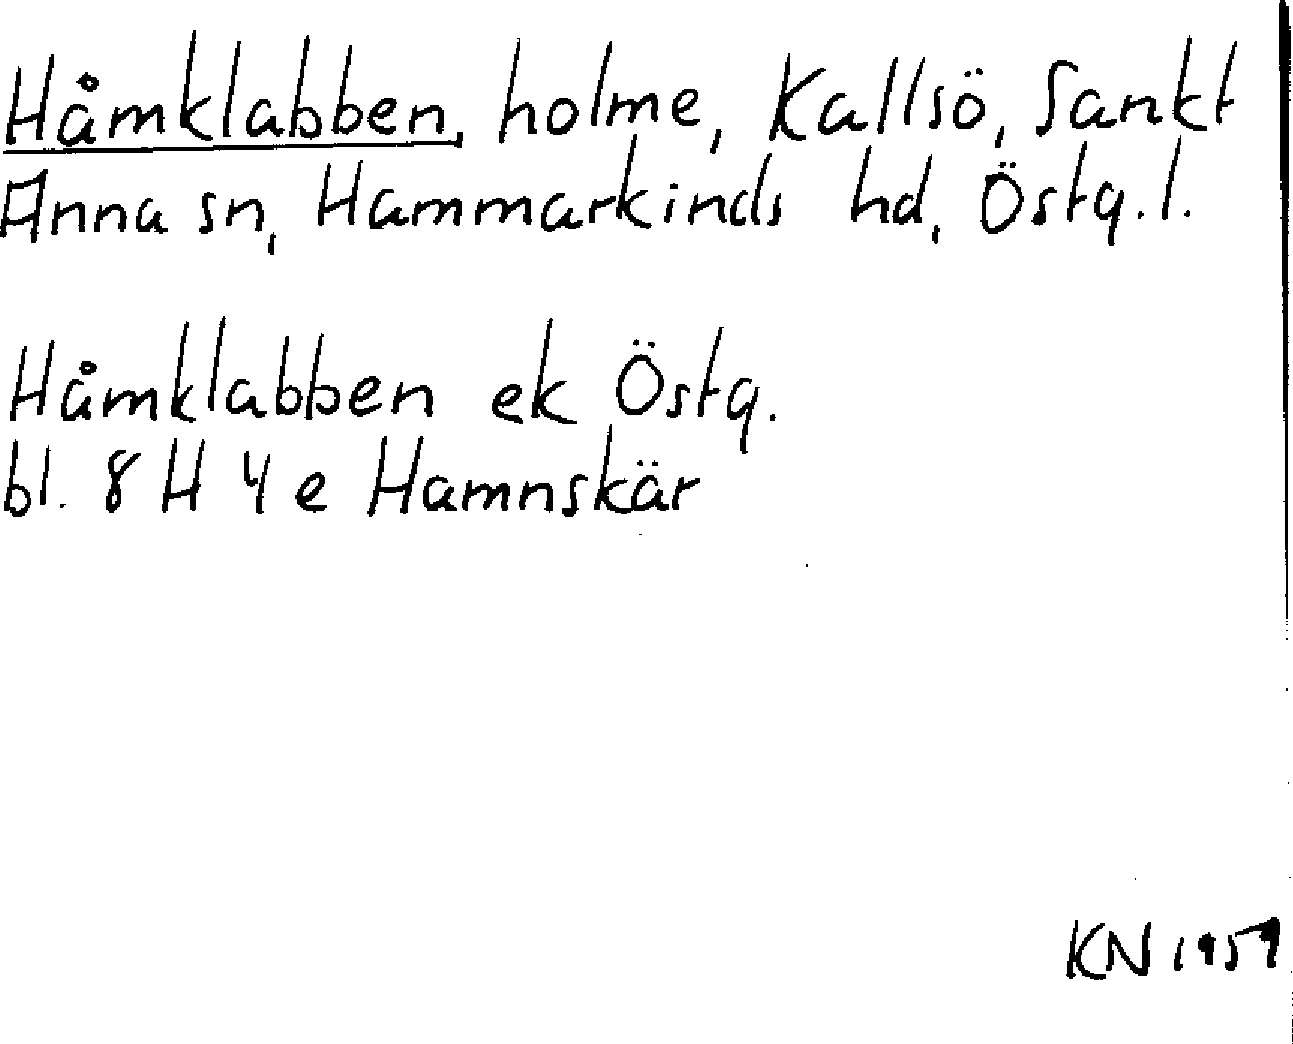 Håmklabben, holme, Kallsö, Sankt
Anna sn, Hammarkinds hd, Östg.l.
Håmklabben ek Östg.
bl. 8 H 4 e Hamnskär
KN 1959